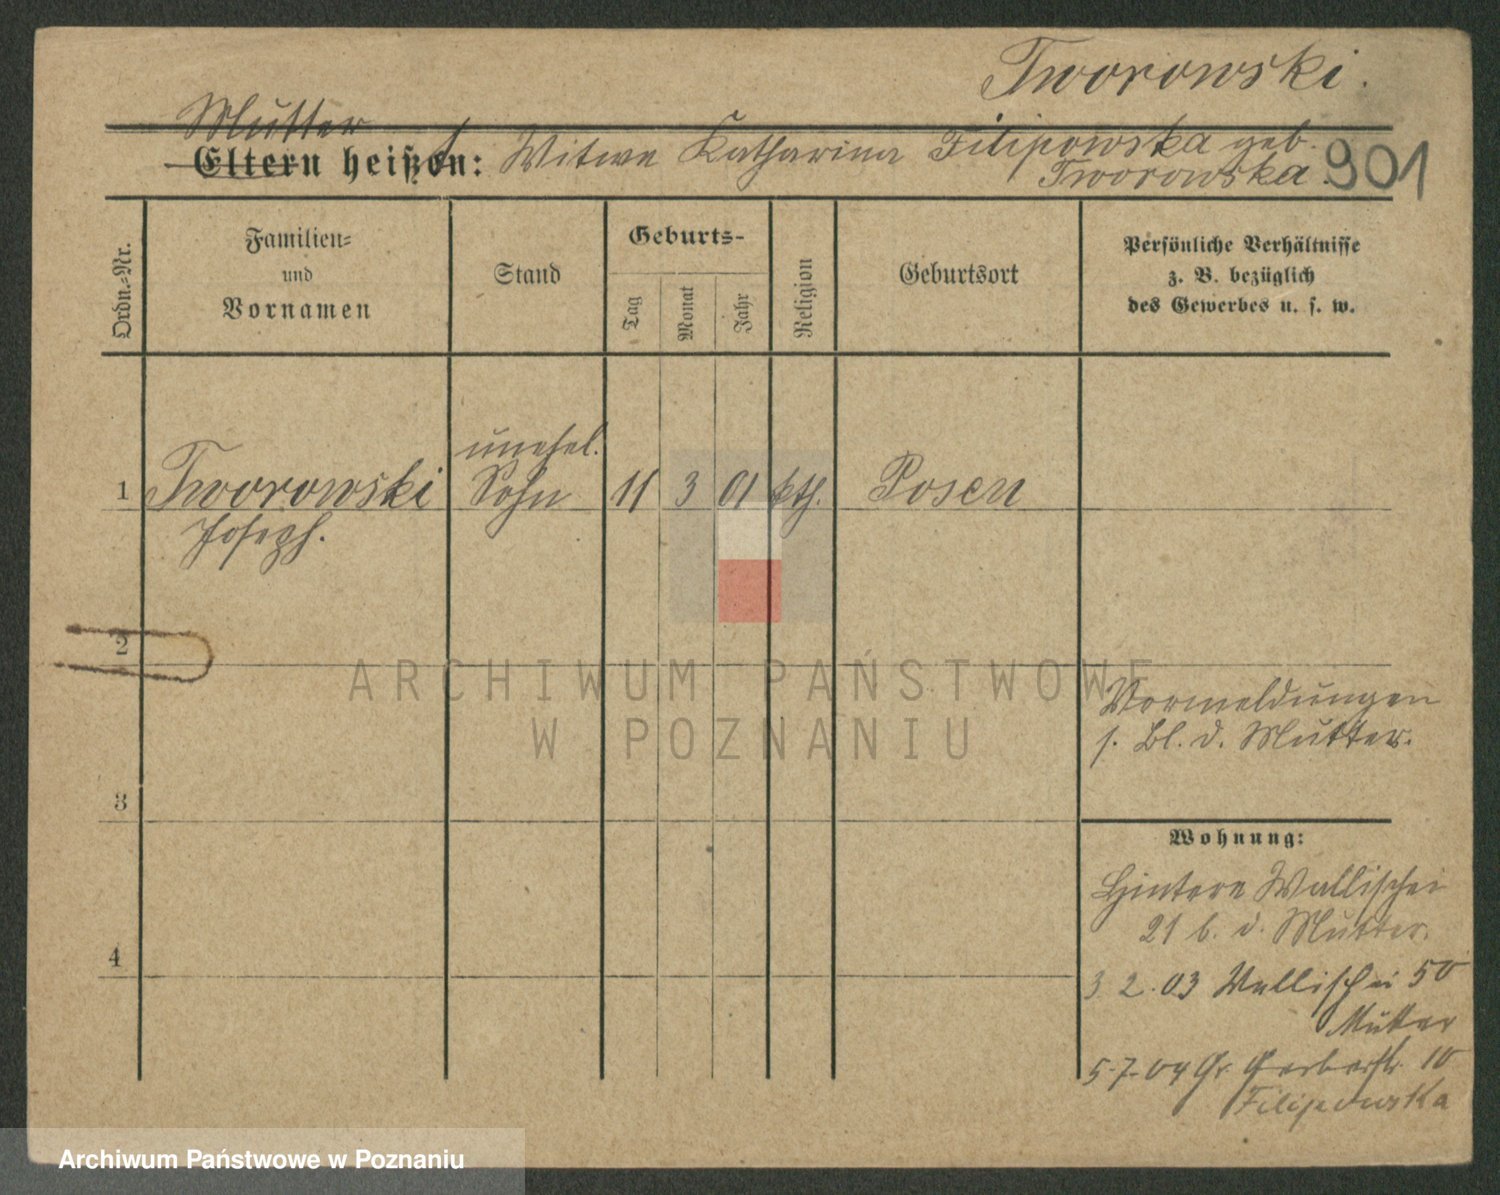 Tworowski.
Mutter
Eltern heißen: Witwe Katharina Filipowska geb.
Tworowska. 901
Ordn.-Nr.
Familien-
und
Vornamen
Stand
Geburts-
Tag
Monat
Jahr
Religion
Geburtsort
Persönliche Verhältnisse
z. B. bezüglich
des Gewerbes u. s. w.
unehel.
1 Tworowski Sohn 11 3 01 kth. Posen
Joseph.
2
ARCHIWUM PAŃSTWOWE
W POZNANIU
Vormeldungen
s. Bl. d. Mutter.
3
Wohnung:
Hintere Wallischei
21 b. d. Mutter.
4
3 2. 03 Wallischei 50
Mutter
5.7.04 Gr. Gerberstr. 10
Filipowska
Archiwum Państwowe w Poznaniu